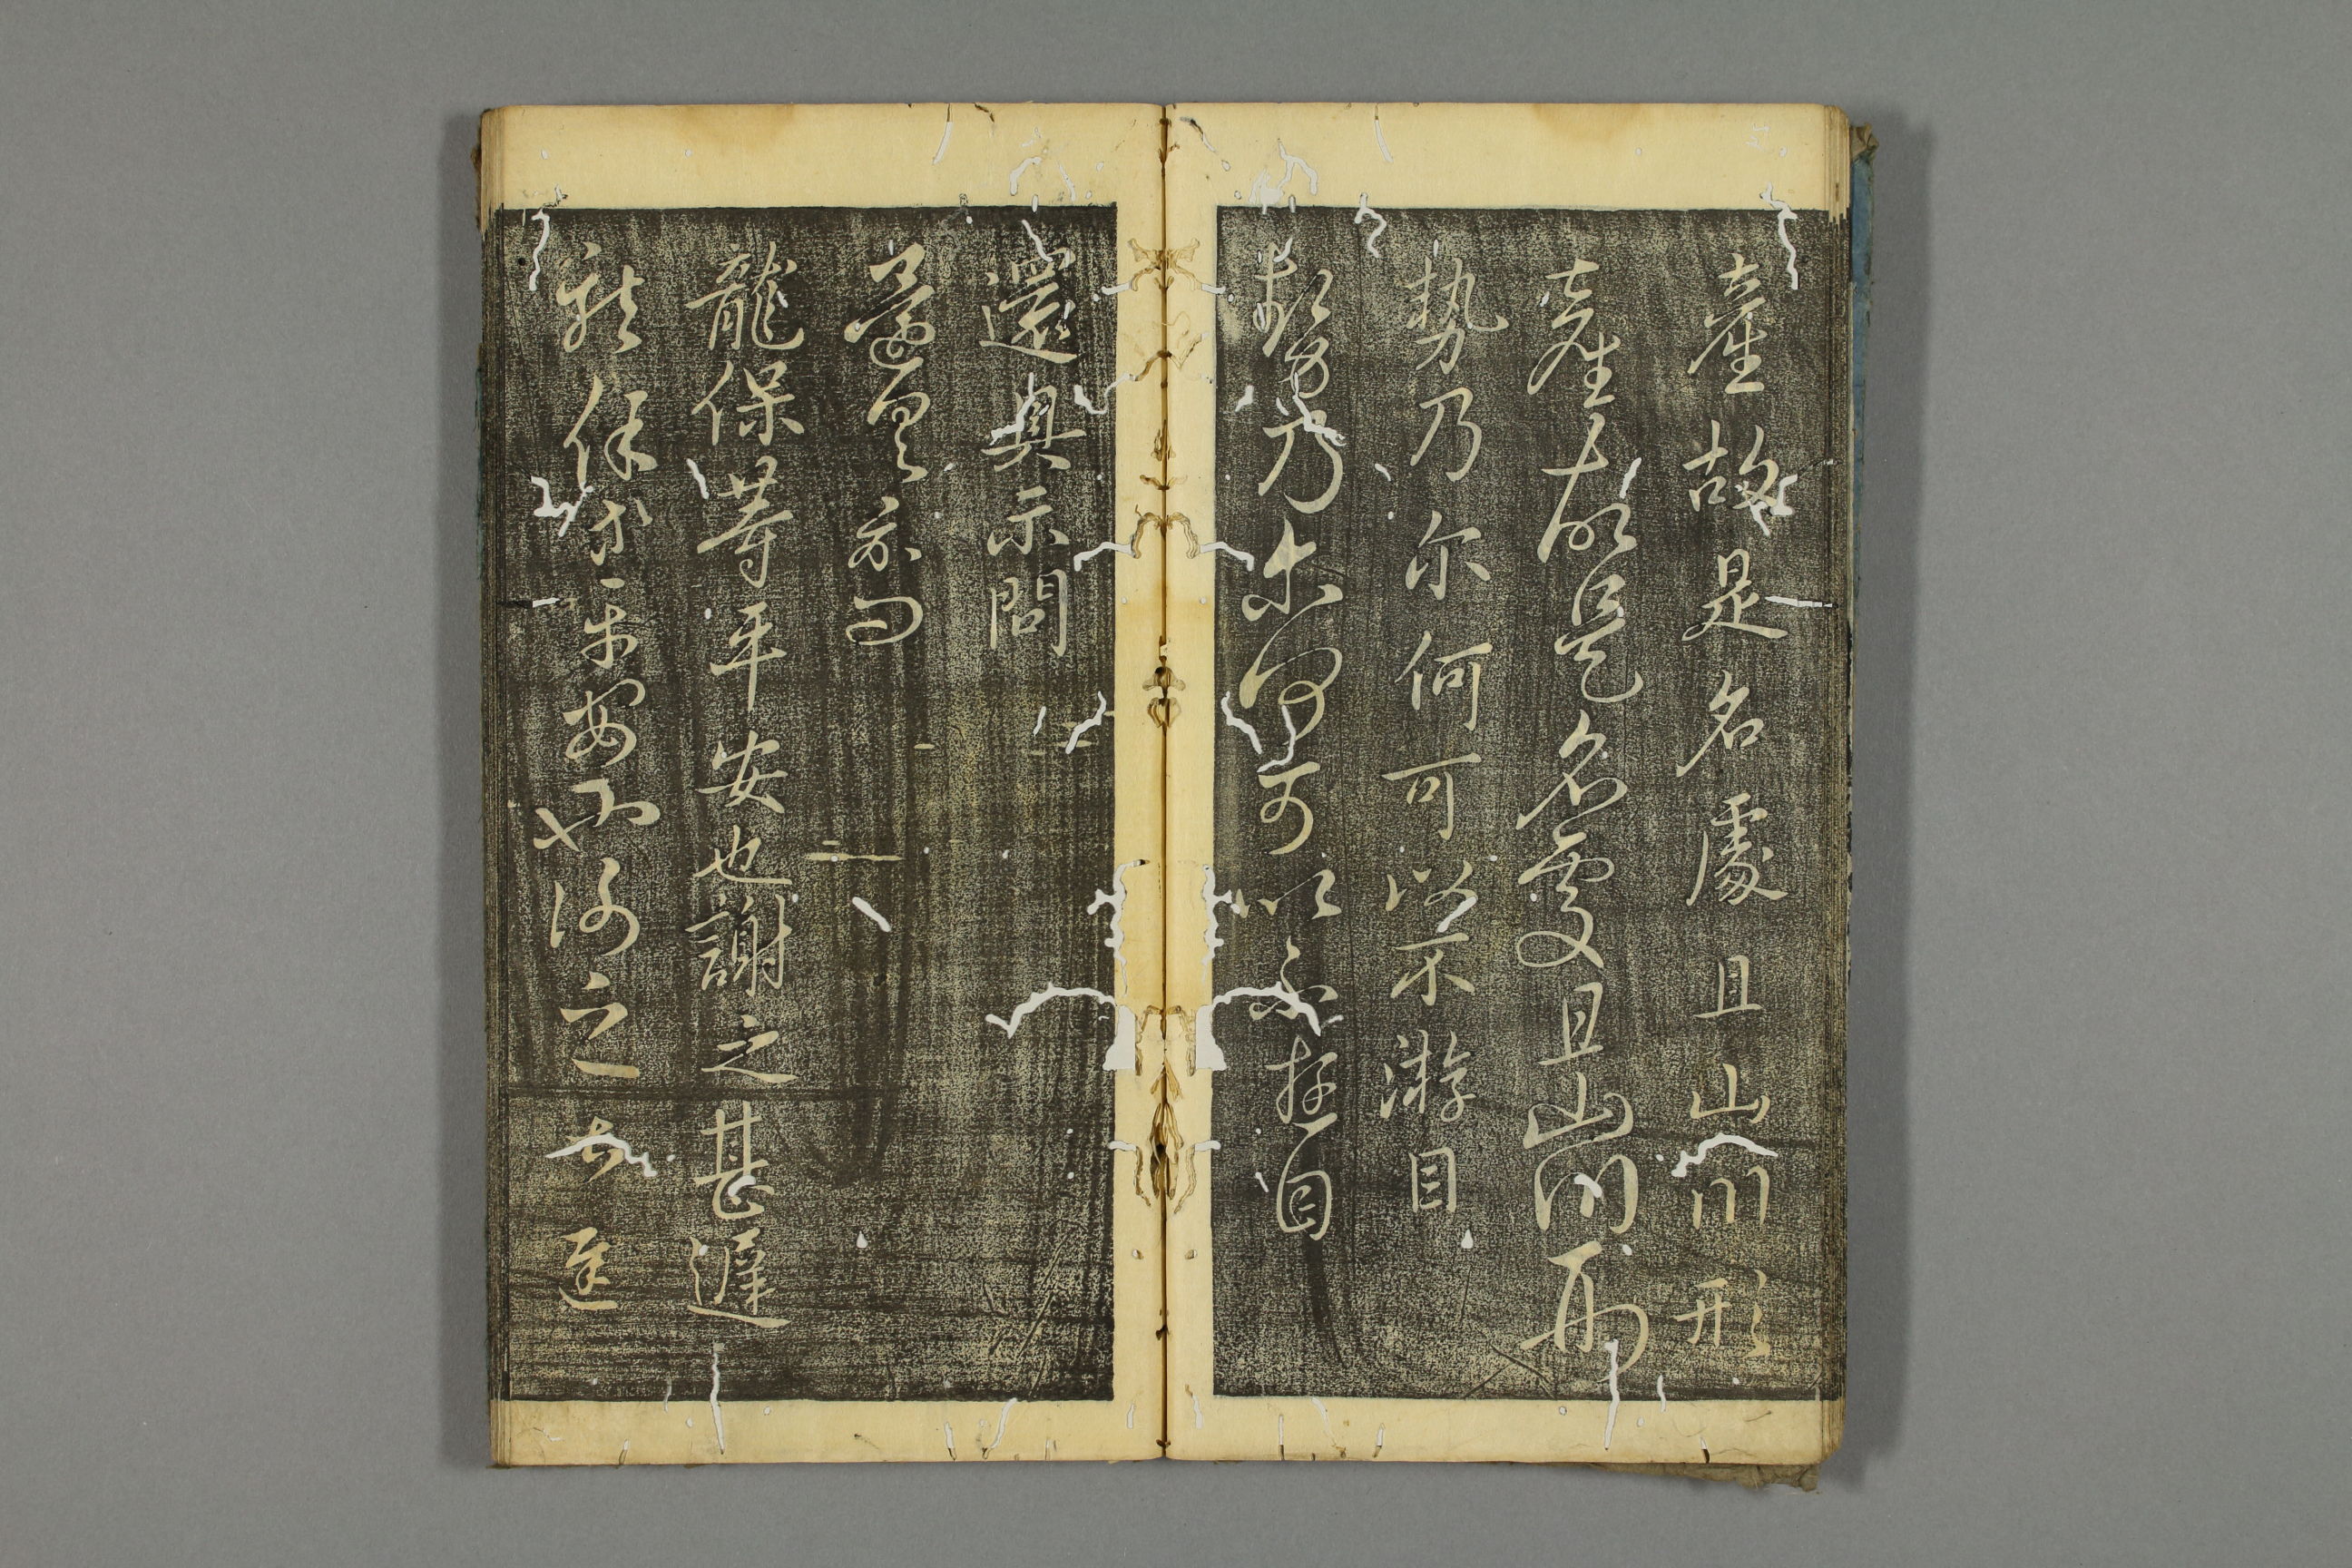 產故是名處且山川形
產故是名處且山川形
勢乃尔何可以不游目
勢乃尔何可以不遊目
還具示問
還具示問
龍保等平安也謝之甚遲
龍保等平安也謝之甚遲